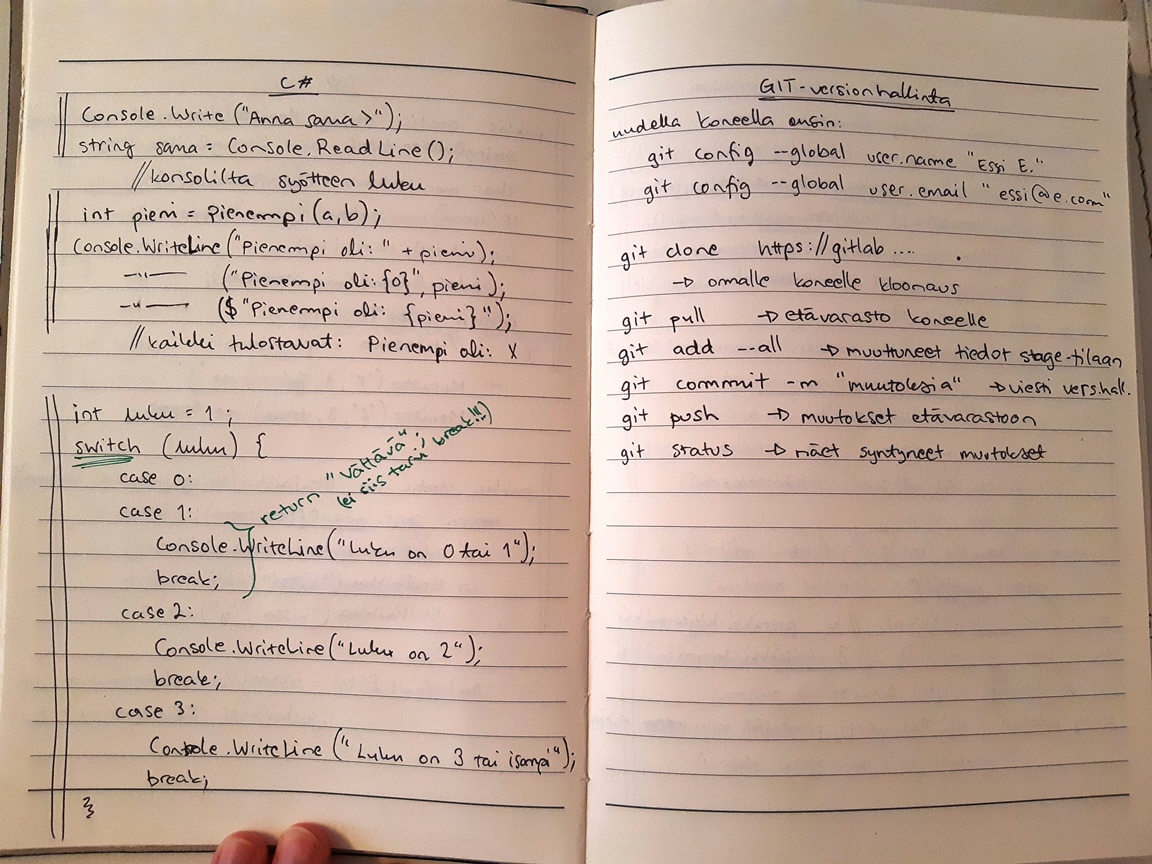 C#
Console.Write ("Anna sana>");
string sana = Console.ReadLine();
//konsolilta syötteen luku
int pieni = Pienempi(a,b);
Console.WriteLine("Pienempi oli: " + pieni);
—"— ("Pienempi oli: {0}", pieni);
—"— ($"Pienempi oli: {pieni}");
//kaikki tulostavat: Pienempi oli: X
int luku = 1;
switch (luku) {
case 0:
case 1:
return "Vättävä";
(ei siis tarvi break!!)
Console.WriteLine("Luku on 0 tai 1");
break;
case 2:
Console.WriteLine("Luku on 2");
break;
case 3:
Console.WriteLine ("Luku on 3 tai isompi");
break;
}
GIT-versionhallinta
uudella koneella ensin:
git config --global user.name "Essi E."
git config --global user.email "essi@e.com"
git clone https://gitlab ....
→ omalle koneelle kloonaus
git pull → etävarasto koneelle
git add --all → muuttuneet tiedot stage-tilaan
git commit -m "muutoksia" → viesti vers.hall.
git push → muutokset etävarastoon
git status → näet syntyneet muutokset